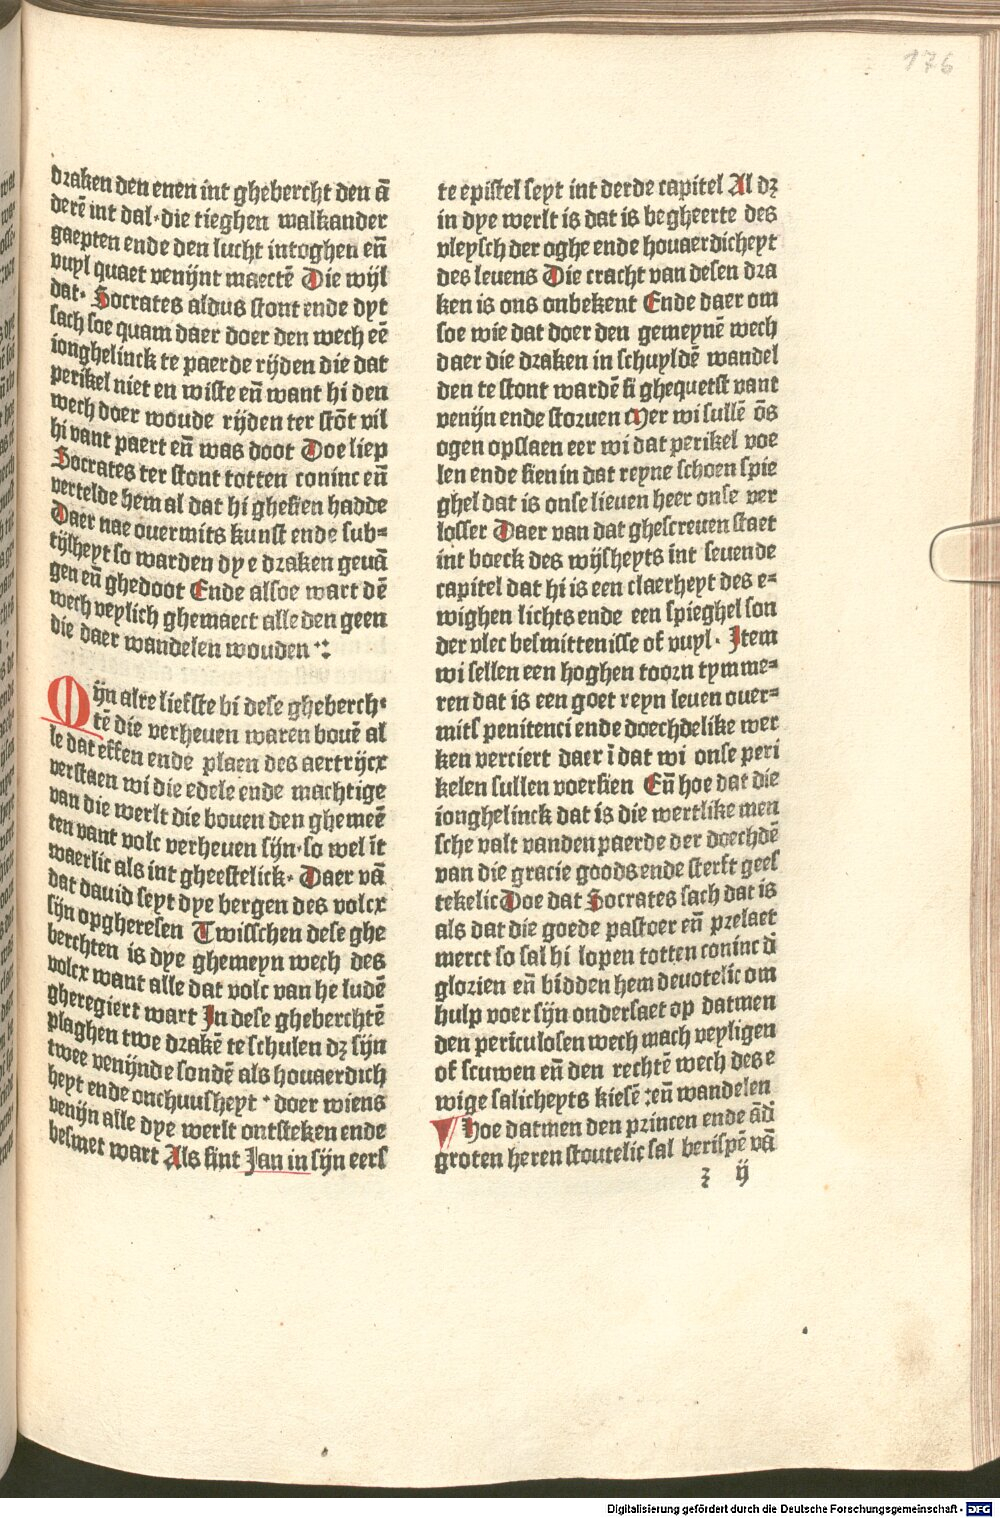 176
draken den enen int ghebercht den ā
derē int dal·die tieghen walkander
gaepten ende den lucht intoghen en̄
vuyl quaet venijnt maectē Die wijl
dat· Socrates aldus stont ende dyt
sach soe quam daer doer den wech eē
ionghelinck te paerde rijden die dat
perikel niet en wiste en̄ want hi den
wech doer woude rijden ter stōt vil
hi vant paert en̄ was doot Doe liep
Socrates ter stont totten coninc en̄
vertelde hem al dat hi ghesien hadde
Daer nae ouermits kunst ende sub⸗
tijlheyt so warden dye draken geuā
gen en̄ ghedoot Ende alsoe wart dē
wech veylich ghemaect alle den geen
die daer wandelen wouden ⁘
Mijn alre liefste bi dese gheberch⸗
tē die verheuen waren bouē al
le dat effen ende plaen des aertrijcx
verstaen wi die edele ende machtige
van die werlt die bouen den ghemeē
ten vant volc verheuen sijn·so wel īt
waerlic als int gheestelick· Daer vā
dat dauid seyt dye bergen des volcx
sijn opgheresen Twisschen dese ghe
berchten is dye ghemeyn wech des
volcx want alle dat volc van he ludē
gheregiert wart In dese gheberchtē
plaghen twe drakē te schulen dꝫ sijn
twee venijnde sondē als houaerdich
heyt ende onchuusheyt · doer wiens
venijn alle dye werlt ontsteken ende
besmet wart Als sint Jan in sijn eers
te epistel seyt int derde capitel Al dꝫ
in dye werlt is dat is begheerte des
vleysch der oghe ende houaerdicheyt
des leuens Die cracht van desen dra
ken is ons onbekent Ende daer om
soe wie dat doer den gemeynē wech
daer die draken in schuyldē wandel
den te stont wardē si ghequetst vant
venijn ende storuen Mer wi sullē ōs
ogen opslaen eer wi dat perikel voe
len ende sien in dat reyne schoen spie
ghel dat is onse lieuen heer onse ver
losser Daer van dat ghescreuen staet
int boeck des wijsheyts int seuende
capitel dat hi is een claerheyt des e⸗
wighen lichts ende een spieghel son
der vlec besmittenisse of vuyl· Item
wi sellen een hoghen toorn tymme⸗
ren dat is een goet reyn leuen ouer⸗
mits penitenci ende doechdelike wer
ken verciert daer ī dat wi onse peri
kelen sullen voersien En̄ hoe dat die
ionghelinck dat is die wertlike men
sche valt vanden paerde der doechdē
van die gracie goods ende sterft gees
tekelic Doe dat Socrates sach dat is
als dat die goede pastoer en̄ prelaet
merct so sal hi lopen totten coninc d̄
glorien en̄ bidden hem deuotelic om
hulp voer sijn ondersaet op datmen
den periculosen wech mach veyligen
of scuwen en̄ den rechtē wech des e
wige salicheyts kiesē :en̄ wandelen
Hoe datmen den princen ende ād̄
groten heren stoutelic sal berispē vā
z ij
Digitalisierung gefördert durch die Deutsche Forschungsgemeinschaft - DFG